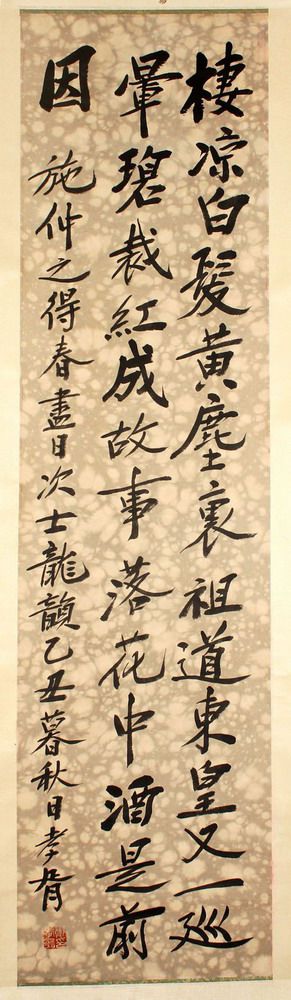 棲涼白髮黃塵裏祖道東皇又一巡
暈碧裁紅成故事落花中酒是前
因 施仲之得春盡日次士龍韻乙丑暮秋日孝胥